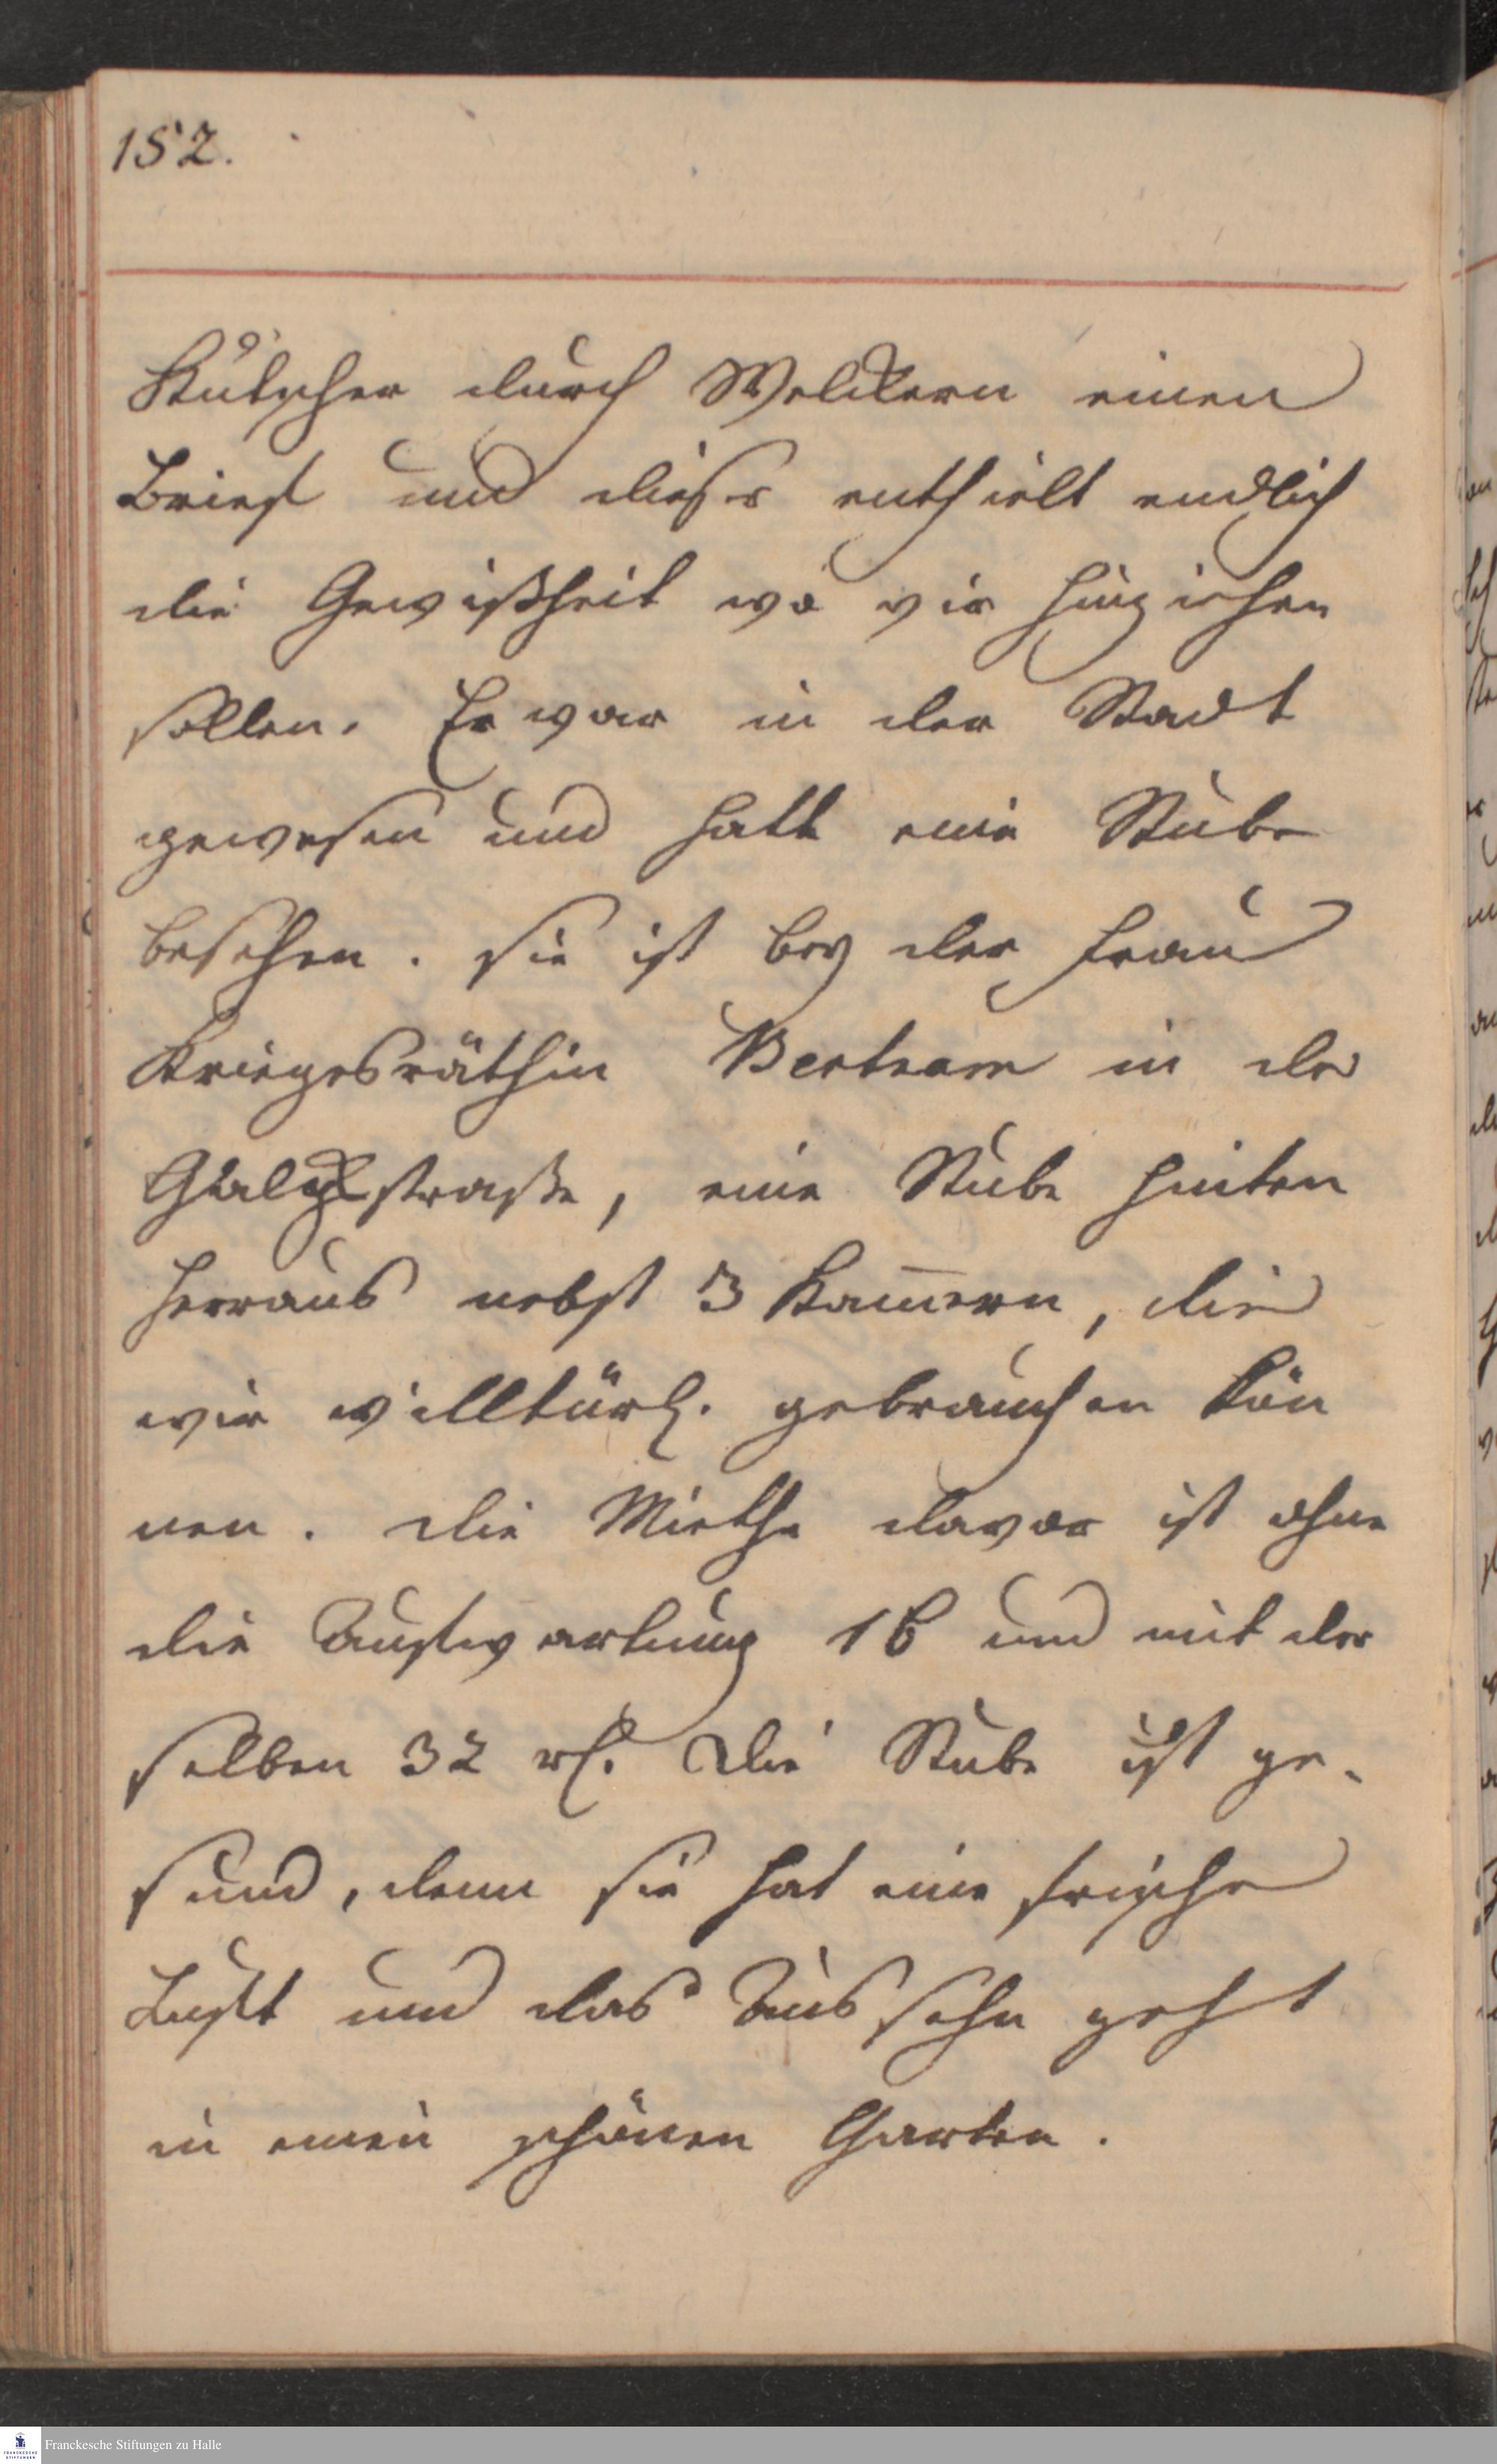 152.
Kutscher durch Weldern einen
Brief und dieser enthielt endlich
die Gewißheit wo wir hinziehen
sollen. Er war in der Stadt
gewesen und hatt eine Stube
besehen. Sie ist bey der Frau
Kriegesräthin Bertram in der
straße, eine Stube hinten
herraus nebst 3 Kam̄ern, die
wir willkürl. gebrauchen kön
nen. Die Miethe davor ist ohne
die Aufwartung 16 und mit der
selben 32 rl. Die Stube ist ge-
sund, denn sie hat eine frische
Luft und das Aussehn geht
in einen schönen Garten.
Franckesche Stiftungen zu Halle
FRANCKESCHE STIFTUNGEN